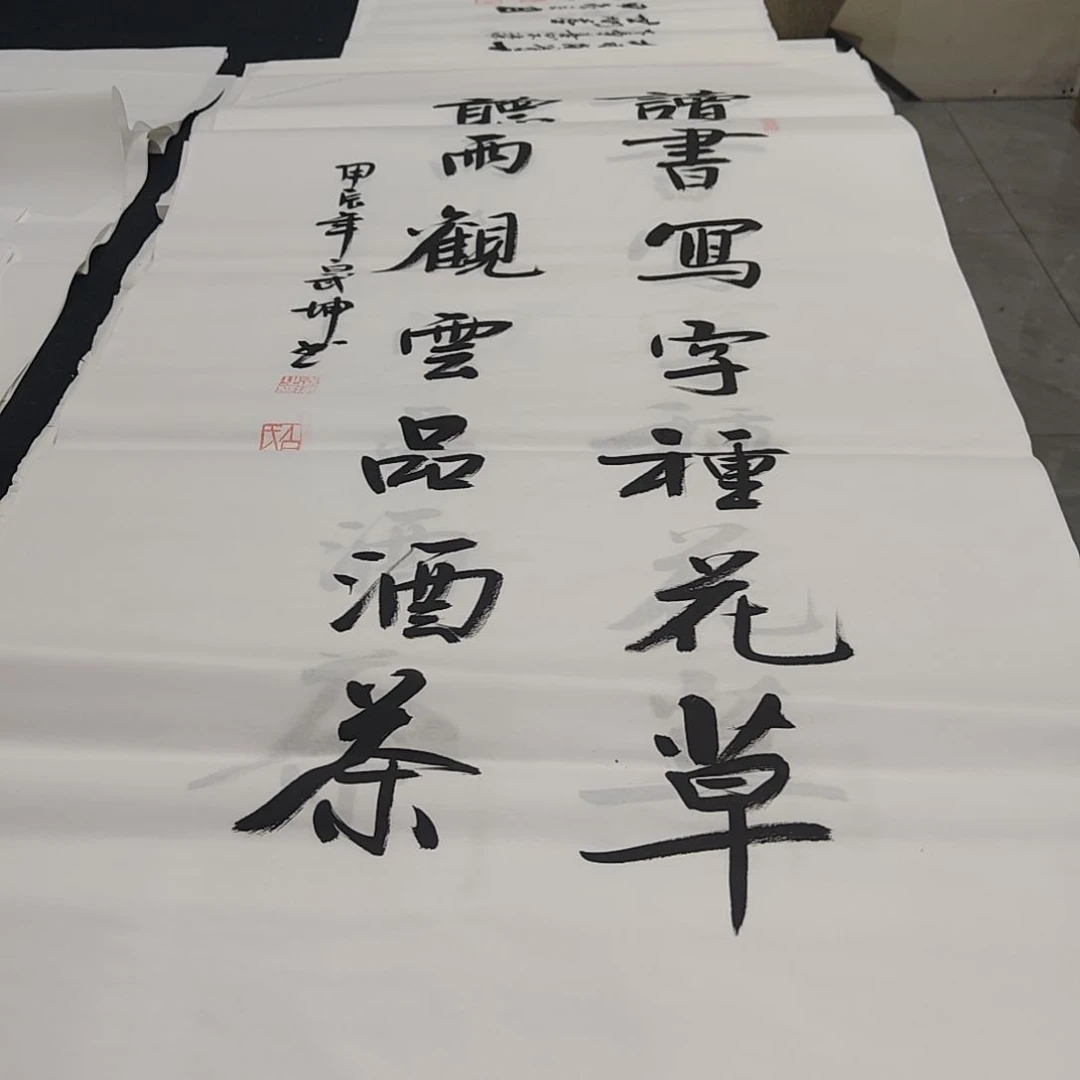 讀書写字種花草
聽雨観雲品酒茶
甲辰年宗坤书